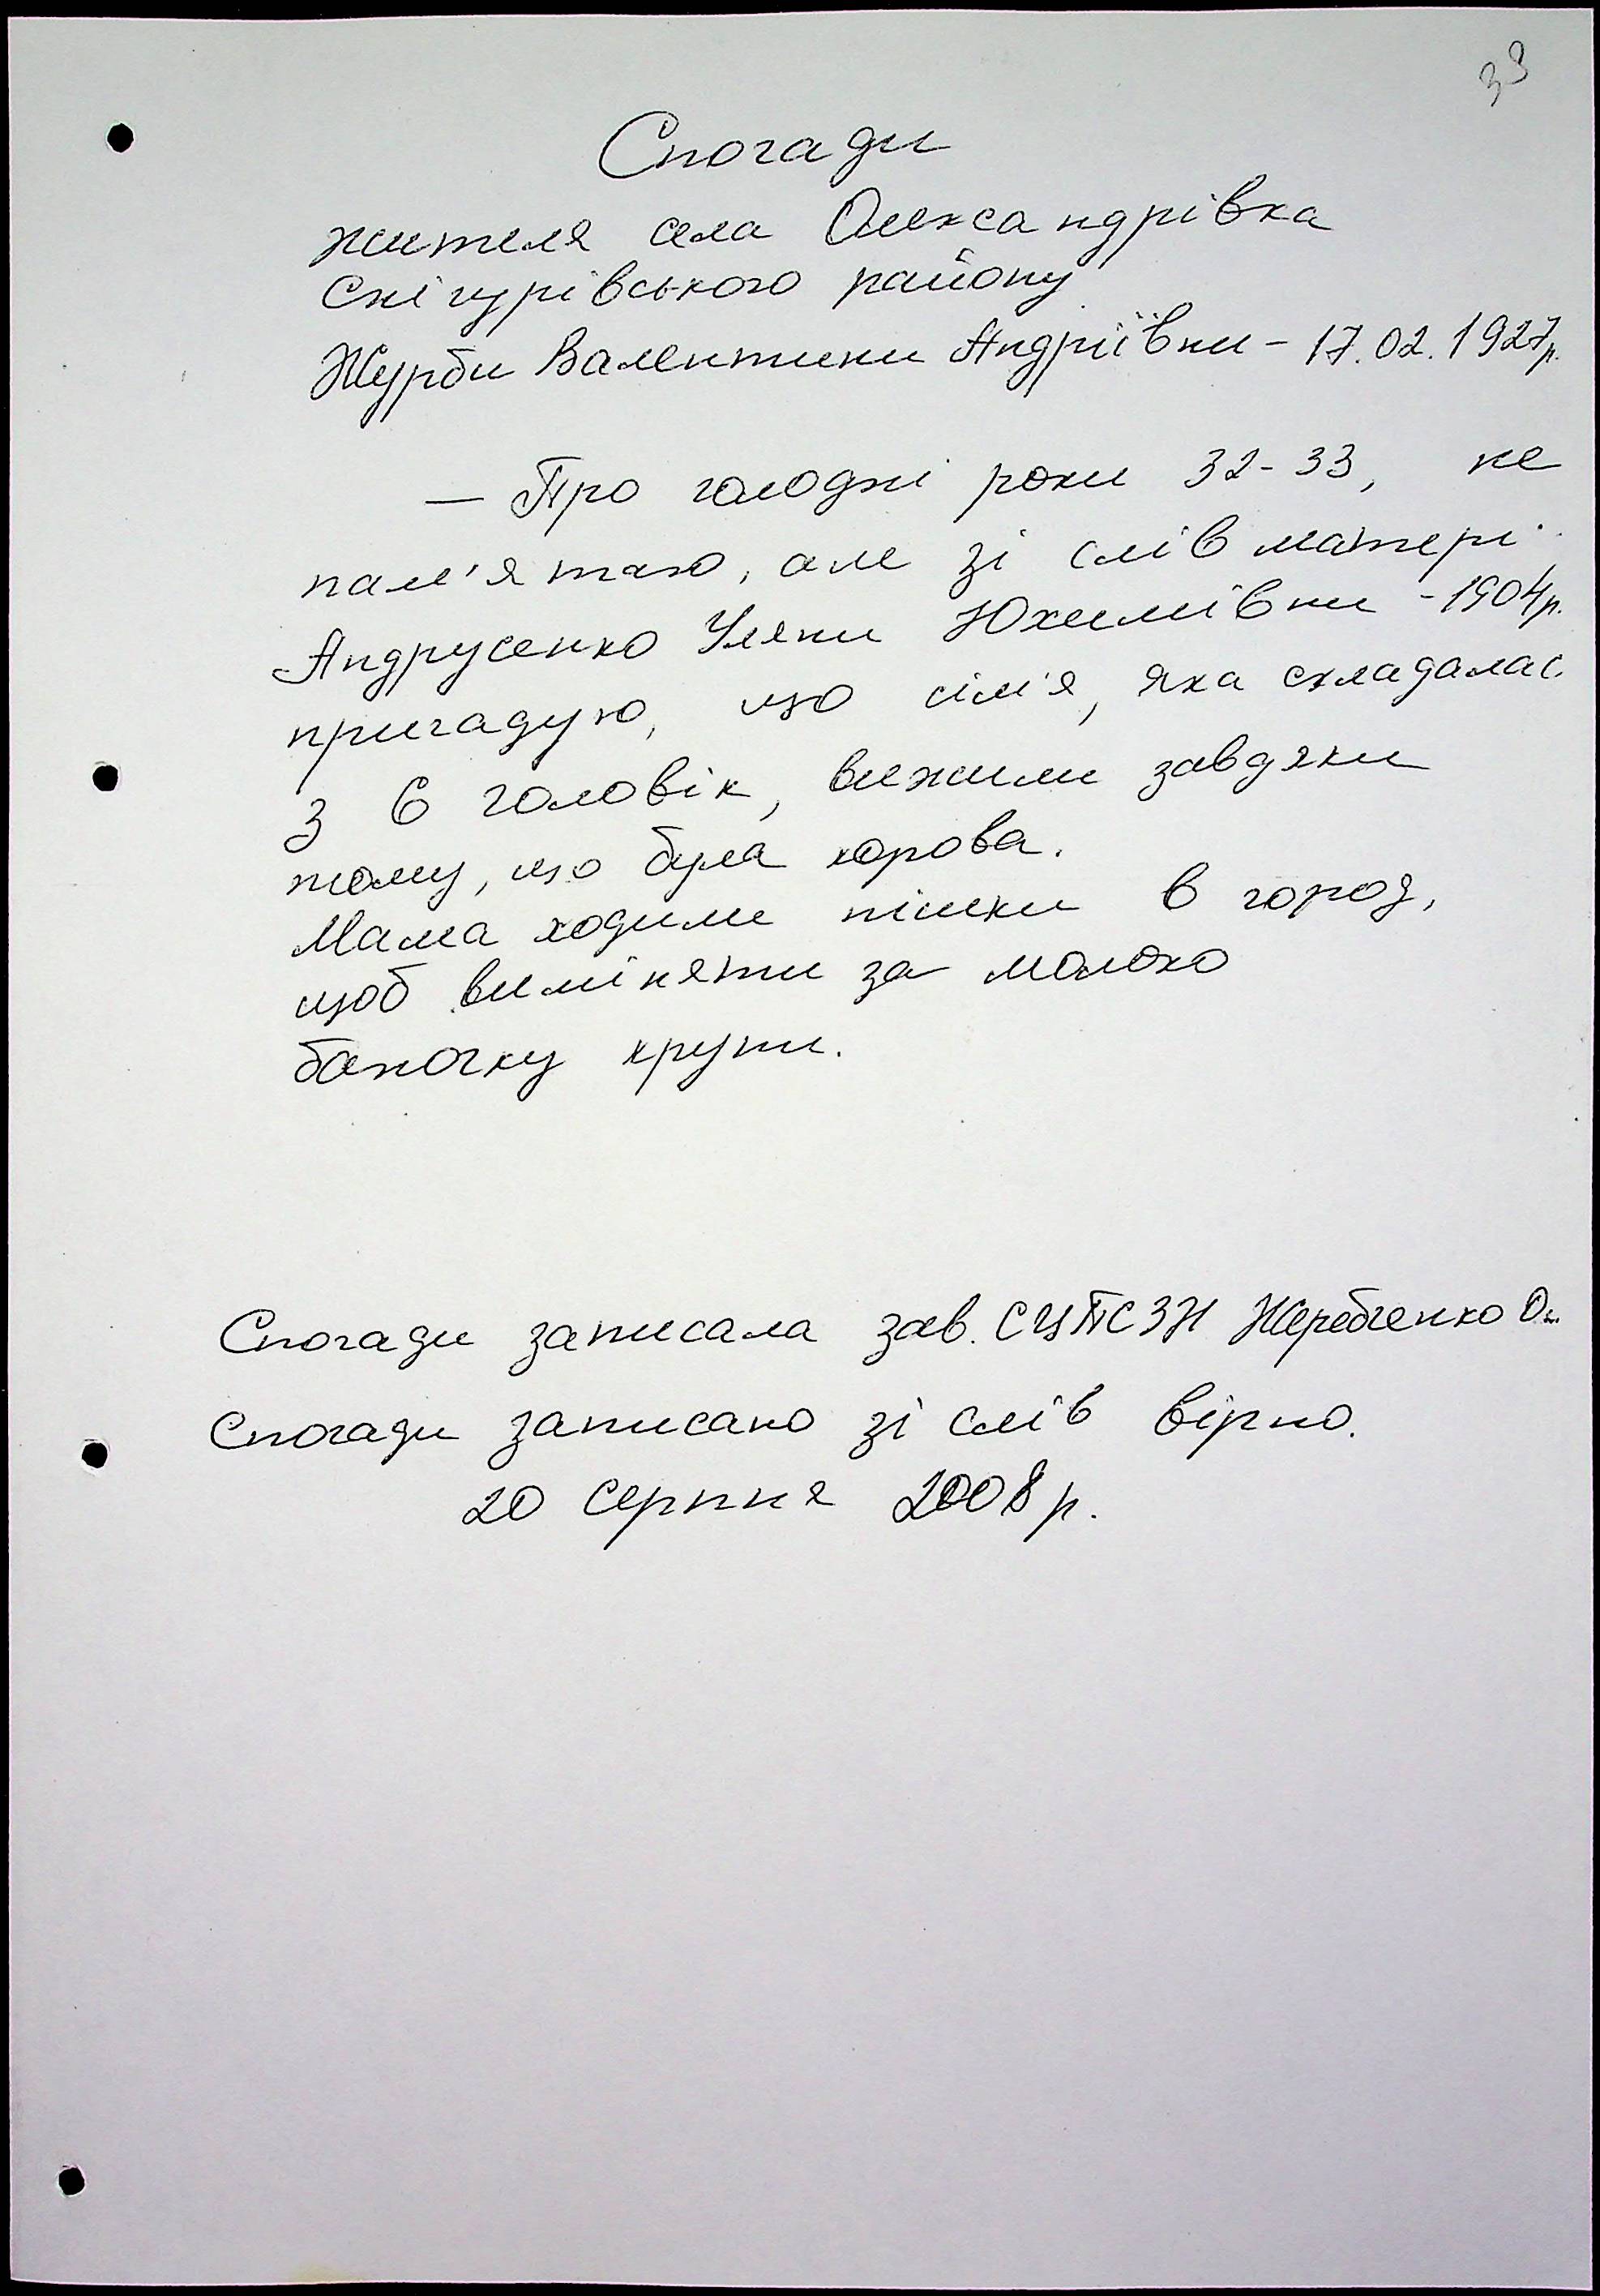 33
Спогади
жителя села Олександрівка
Снігурівського району
Журби Валентини Андріївни - 17.02.1927р.
— Про голодні роки 32-33, не
пам'ятаю, але зі слів матері
Андрусенко Уляни Юхимівни - 1904р.
пригадую, що сім'я, яка складалас
з 6 головік, вижили завдяки
тому, що була корова.
Мама ходили пішки в город,
щоб виміняти за молоко
баночку крупи.
Спогади записала зав. СЦПСЗН Жеребченко
Спогади записано зі слів вірно.
20 серпня 2008р.